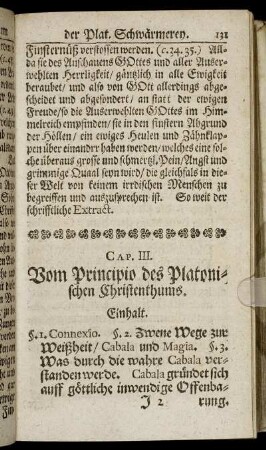 der Plat. Schwärmerey. 131
Finsternüß verstossen werden. (c. 34. 35.) All-
da sie des Anschauens GOttes und aller Auser-
wehlten Herrligkeit/ gäntzlich in alle Ewigkeit
beraubet/ und also von GOtt allerdings abge-
scheidet und abgesondert/ an statt der ewigen
Freude/ so die Auserwehlten GOttes im Him-
melreich empfinden/ sie in den finstern Abgrund
der Höllen/ ein ewiges Heulen und Zähnklap-
pen über einander haben werden/ welches eine sol-
che überaus grosse und schmertzl. Pein/ Angst und
grimmige Quaal seyn wird/ die gleichfals in die-
ser Welt von keinem irrdischen Menschen zu
begreiffen und auszusprechen ist. So weit der
schrifftliche Extract.
CAP. III.
Vom Principio des Platoni-
schen Christenthums.
Einhalt.
§. 1. Connexio. §. 2. Zwene Wege zur
Weißheit/ Cabala und Magia. §. 3.
Was durch die wahre Cabala ver-
standen werde. Cabala gründet sich
auff göttliche inwendige Offenba-
J 2 rung.